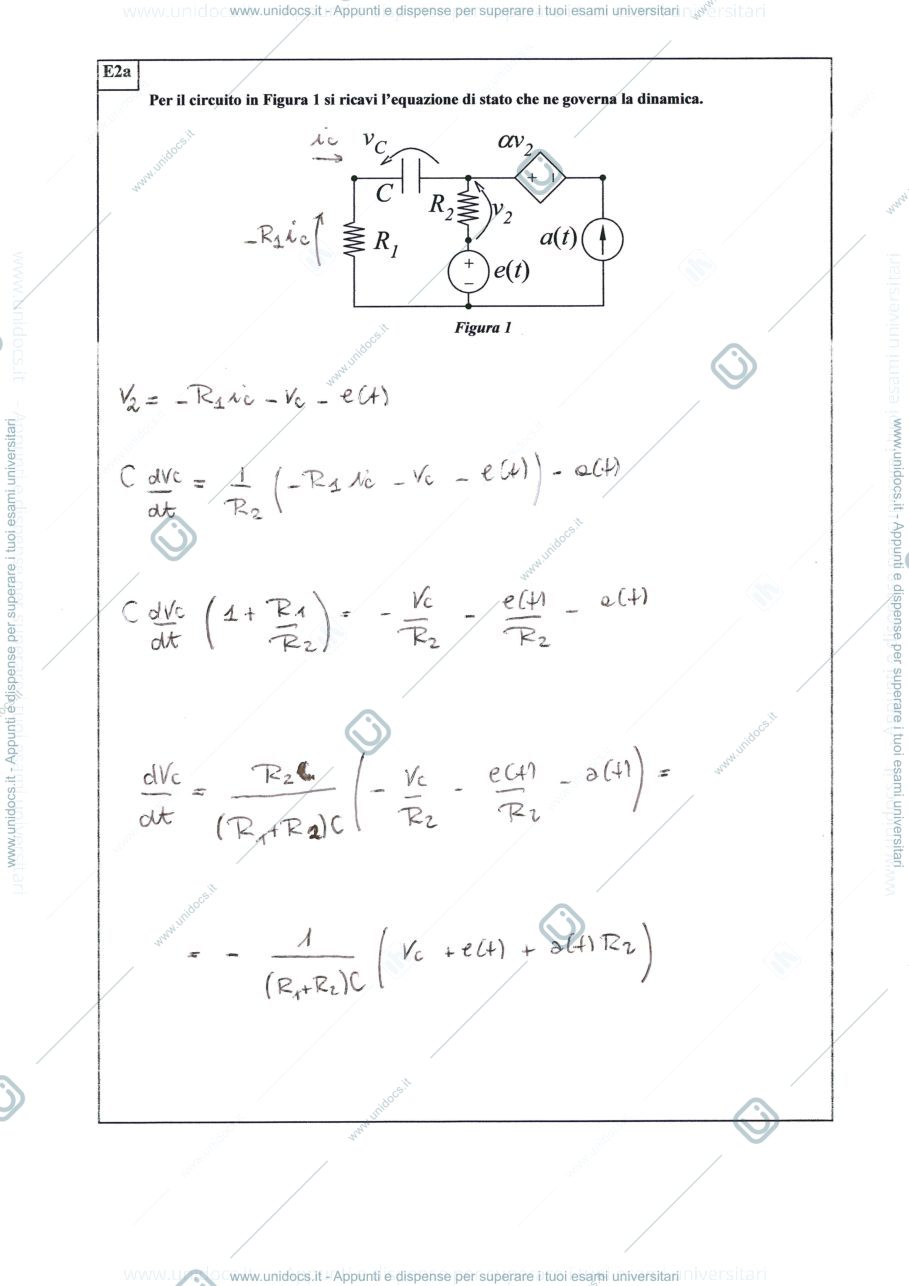 www.unidocs.it - Appunti e dispense per superare i tuoi esami universitari
E2a
Per il circuito in Figura 1 si ricavi l'equazione di stato che ne governa la dinamica.
ic
v_C
αv_2
+
C
R_2
v_2
-R_1 ic
R_1
a(t)
+
e(t)
−
Figura 1
V_2 = -R_1 ic - V_c - e(t)
C dVc/dt = 1/R_2 (-R_1 ic - V_c - e(t)) - a(t)
C dVc/dt (1 + R_1/R_2) = - V_c/R_2 - e(t)/R_2 - a(t)
dVc/dt = R_2/((R_1+R_2)C) (- V_c/R_2 - e(t)/R_2 - a(t)) =
= - 1/((R_1+R_2)C) (V_c + e(t) + a(t) R_2)
www.unidocs.it
www.unidocs.it
www.unidocs.it
www.unidocs.it
www.unidocs.it
www.unidocs.it
www.unidocs.it - Appunti e dispense per superare i tuoi esami universitari
www.unidocs.it - Appunti e dispense per superare i tuoi esami universitari
www.unidocs.it - Appunti e dispense per superare i tuoi esami universitari